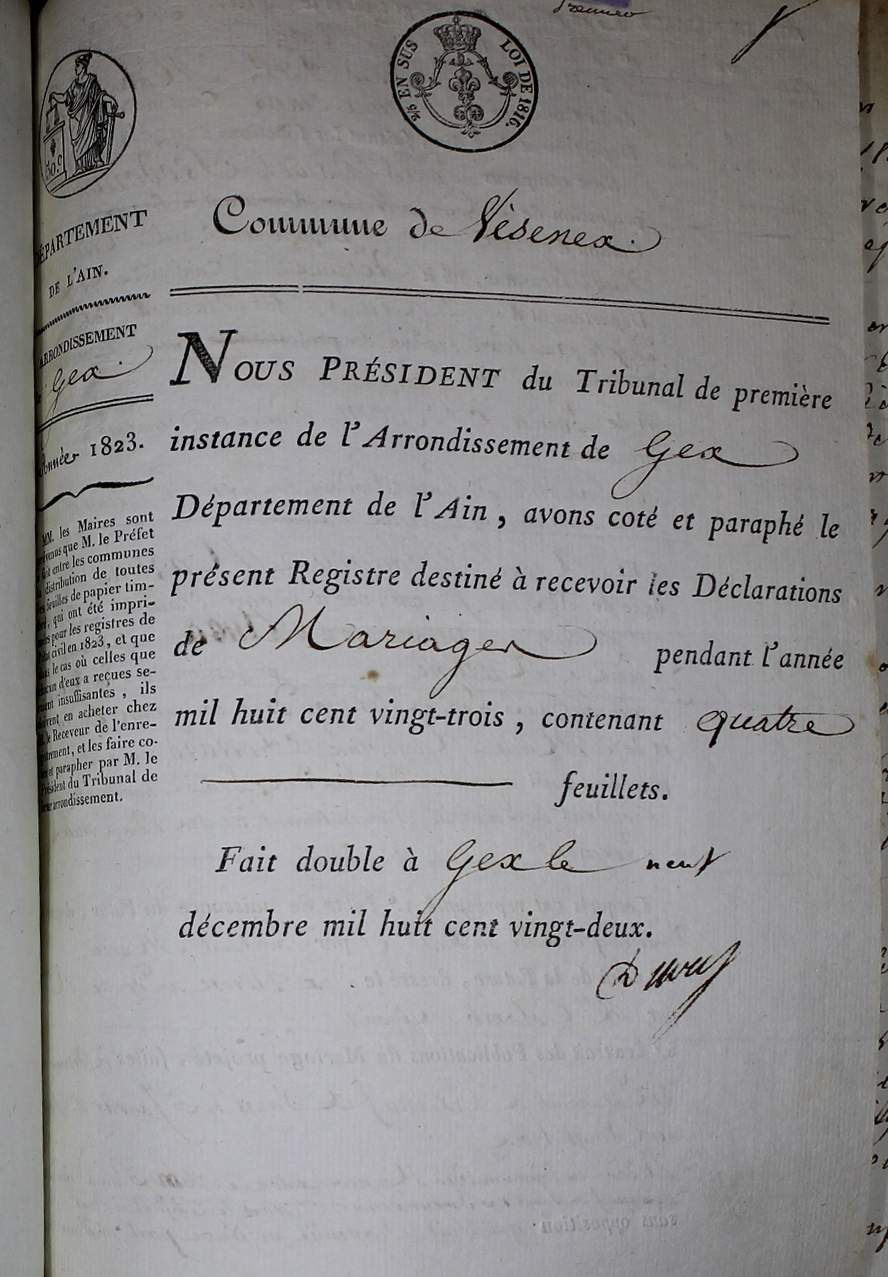 5/6 EN SUS
LOI DE 1816.
50 c
DÉPARTEMENT
DE L'AIN.
ARRONDISSEMENT
Gex
Année 1823.
MM. les Maires sont
que M. le Préfet
entre les communes
distribution de toutes
feuilles de papier tim-
, qui ont été impri-
pour les registres de
civil en 1823, et que
le cas où celles que
d'eux a reçues se-
insuffisantes, ils
en acheter chez
le Receveur de l'enre-
, et les faire co-
et parapher par M. le
du Tribunal de
arrondissement.
Commune de Vésenex.
NOUS PRÉSIDENT du Tribunal de première
instance de l'Arrondissement de Gex
Département de l'Ain, avons coté et paraphé le
présent Registre destiné à recevoir les Déclarations
de Mariages pendant l'année
mil huit cent vingt-trois, contenant quatre
feuillets.
Fait double à Gex le neuf
décembre mil huit cent vingt-deux.